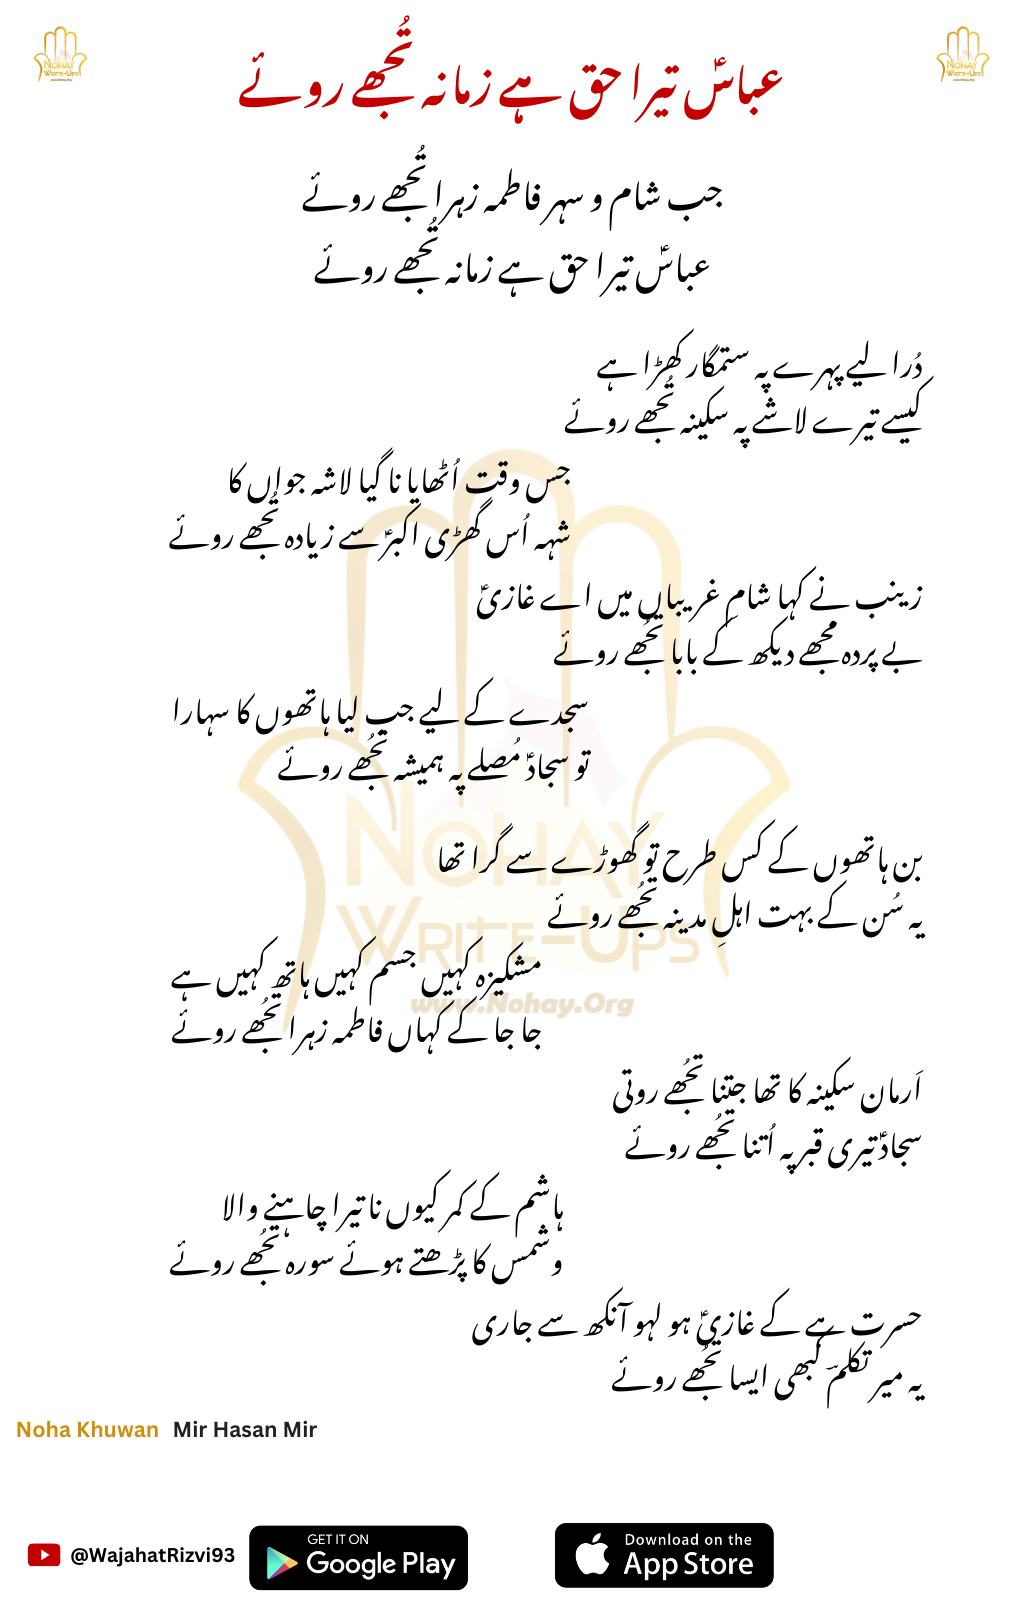 عباسؑ تیرا حق ہے زمانہ تُجھے روئے
جب شام و سہر فاطمہ زہرا تُجھے روئے
عباسؑ تیرا حق ہے زمانہ تُجھے روئے
دُرا لیے پہرے پہ ستمگار کھڑا ہے
کیسے تیرے لاشے پہ سکینہ تُجھے روئے
جس وقت اُٹھایا نا گیا لاشہ جواں کا
شہہ اُس گھڑی اکبرؑ سے زیادہ تُجھے روئے
زینب نے کہا شامِ غریباں میں اے غازیؑ
بے پردہ مجھے دیکھ کے بابا تُجھے روئے
سجدے کے لیے جب لیا ہاتھوں کا سہارا
تو سجادؑ مُصلے پہ ہمیشہ تُجھے روئے
بن ہاتھوں کے کس طرح تو گھوڑے سے گرا تھا
یہ سُن کے بہت اہلِ مدینہ تُجھے روئے
مشکیزہ کہیں جسم کہیں ہاتھ کہیں ہے
جا جا کے کہاں فاطمہ زہرا تُجھے روئے
اَرمان سکینہ کا تھا جتنا تُجھے روتی
سجادؑ تیری قبر پہ اُتنا تُجھے روئے
ہاشم کے کمر کیوں نا تیرا چاہنے والا
وشمس کا پڑھتے ہوئے سورہ تُجھے روئے
حسرت ہے کے غازیؑ ہو لہو آنکھ سے جاری
یہ میر تکلمؔ کبھی ایسا تُجھے روئے
Noha Khuwan Mir Hasan Mir
@WajahatRizvi93
GET IT ON
Google Play
Download on the
App Store
NOHAY
WRITE-UPS
www.Nohay.Org